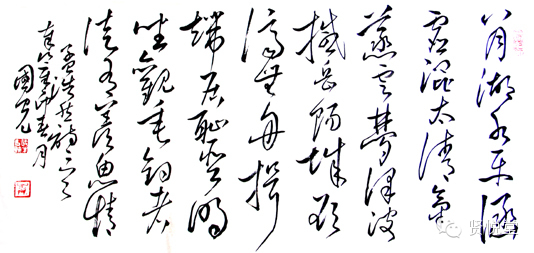 八月湖水平涵
虛混太清氣
蒸雲夢澤波
撼岳陽城欲
濟無舟楫
端居恥聖明
坐觀垂釣者
徒有羨魚情
孟浩然詩
春月